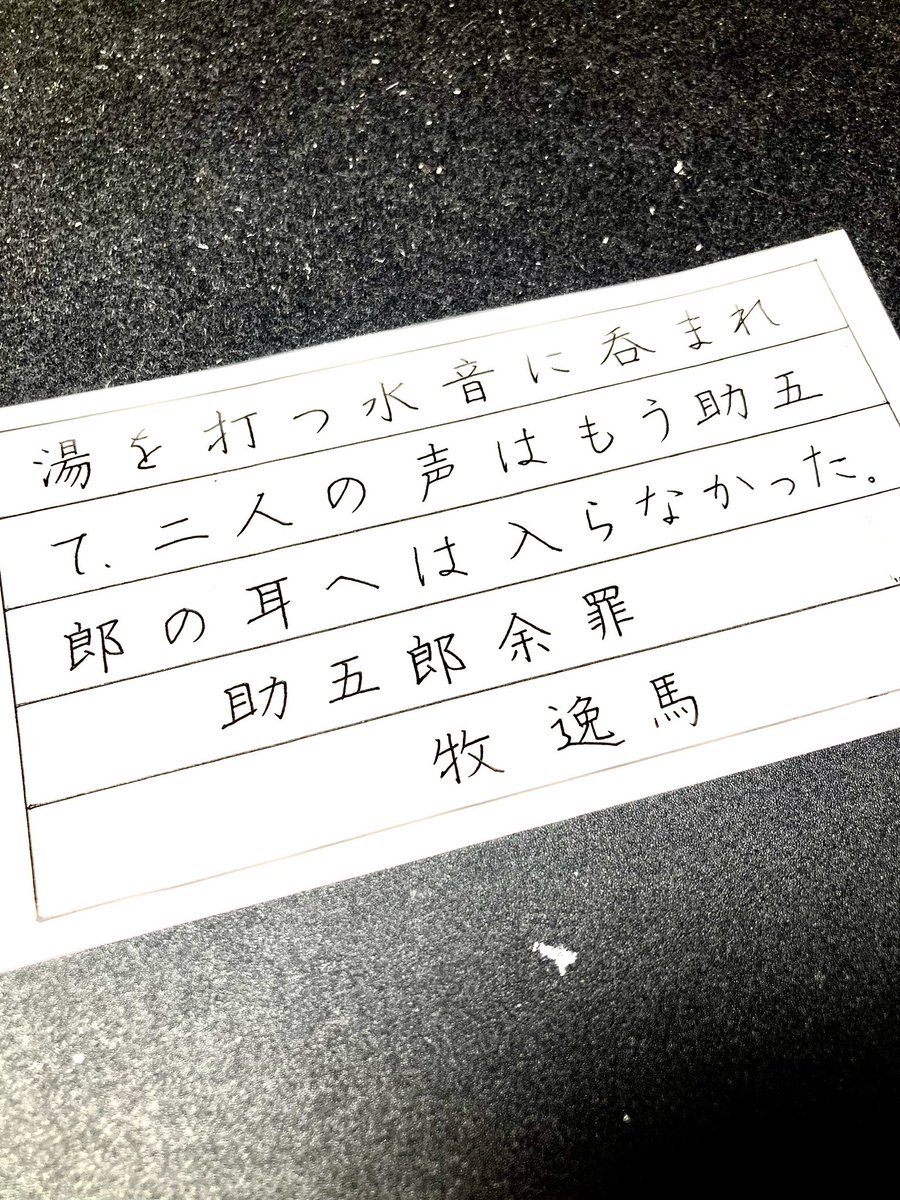 湯を打つ水音に呑まれ
て、二人の声はもう助五
郎の耳へは入らなかった。
助五郎余罪
牧逸馬